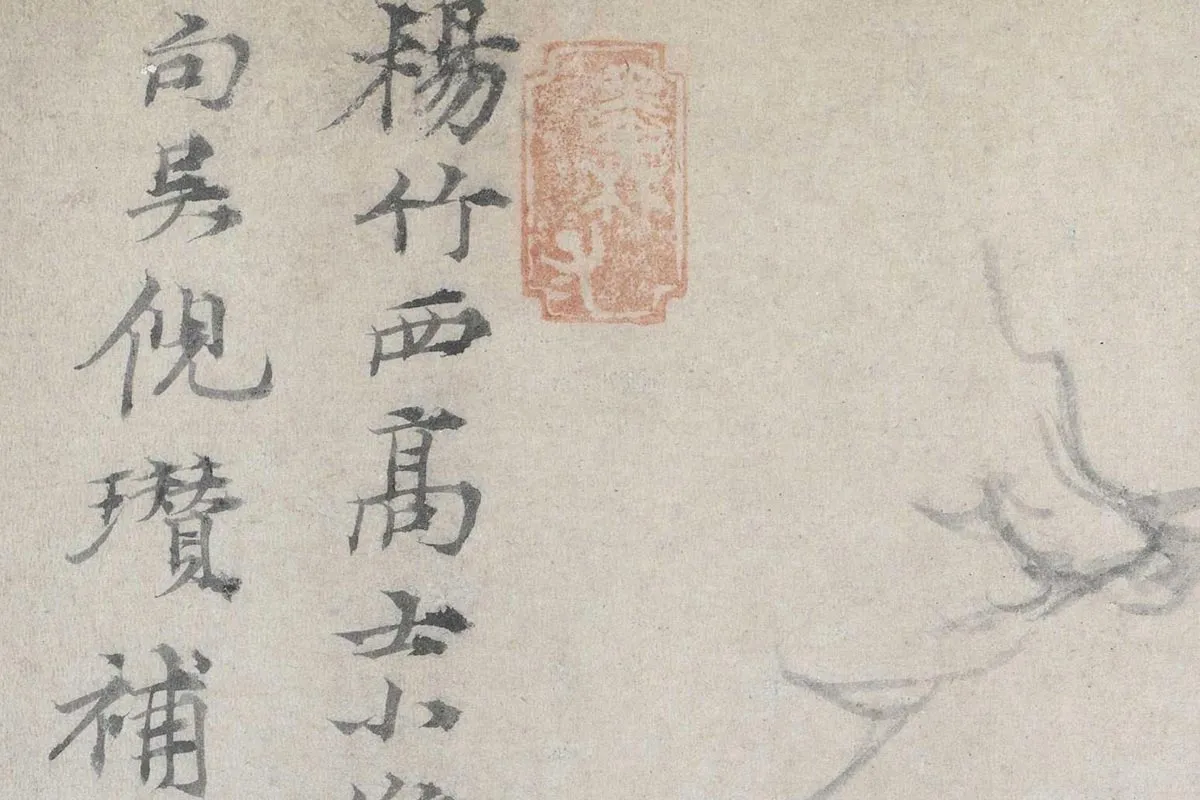 楊竹西高士小
句吳倪瓚補